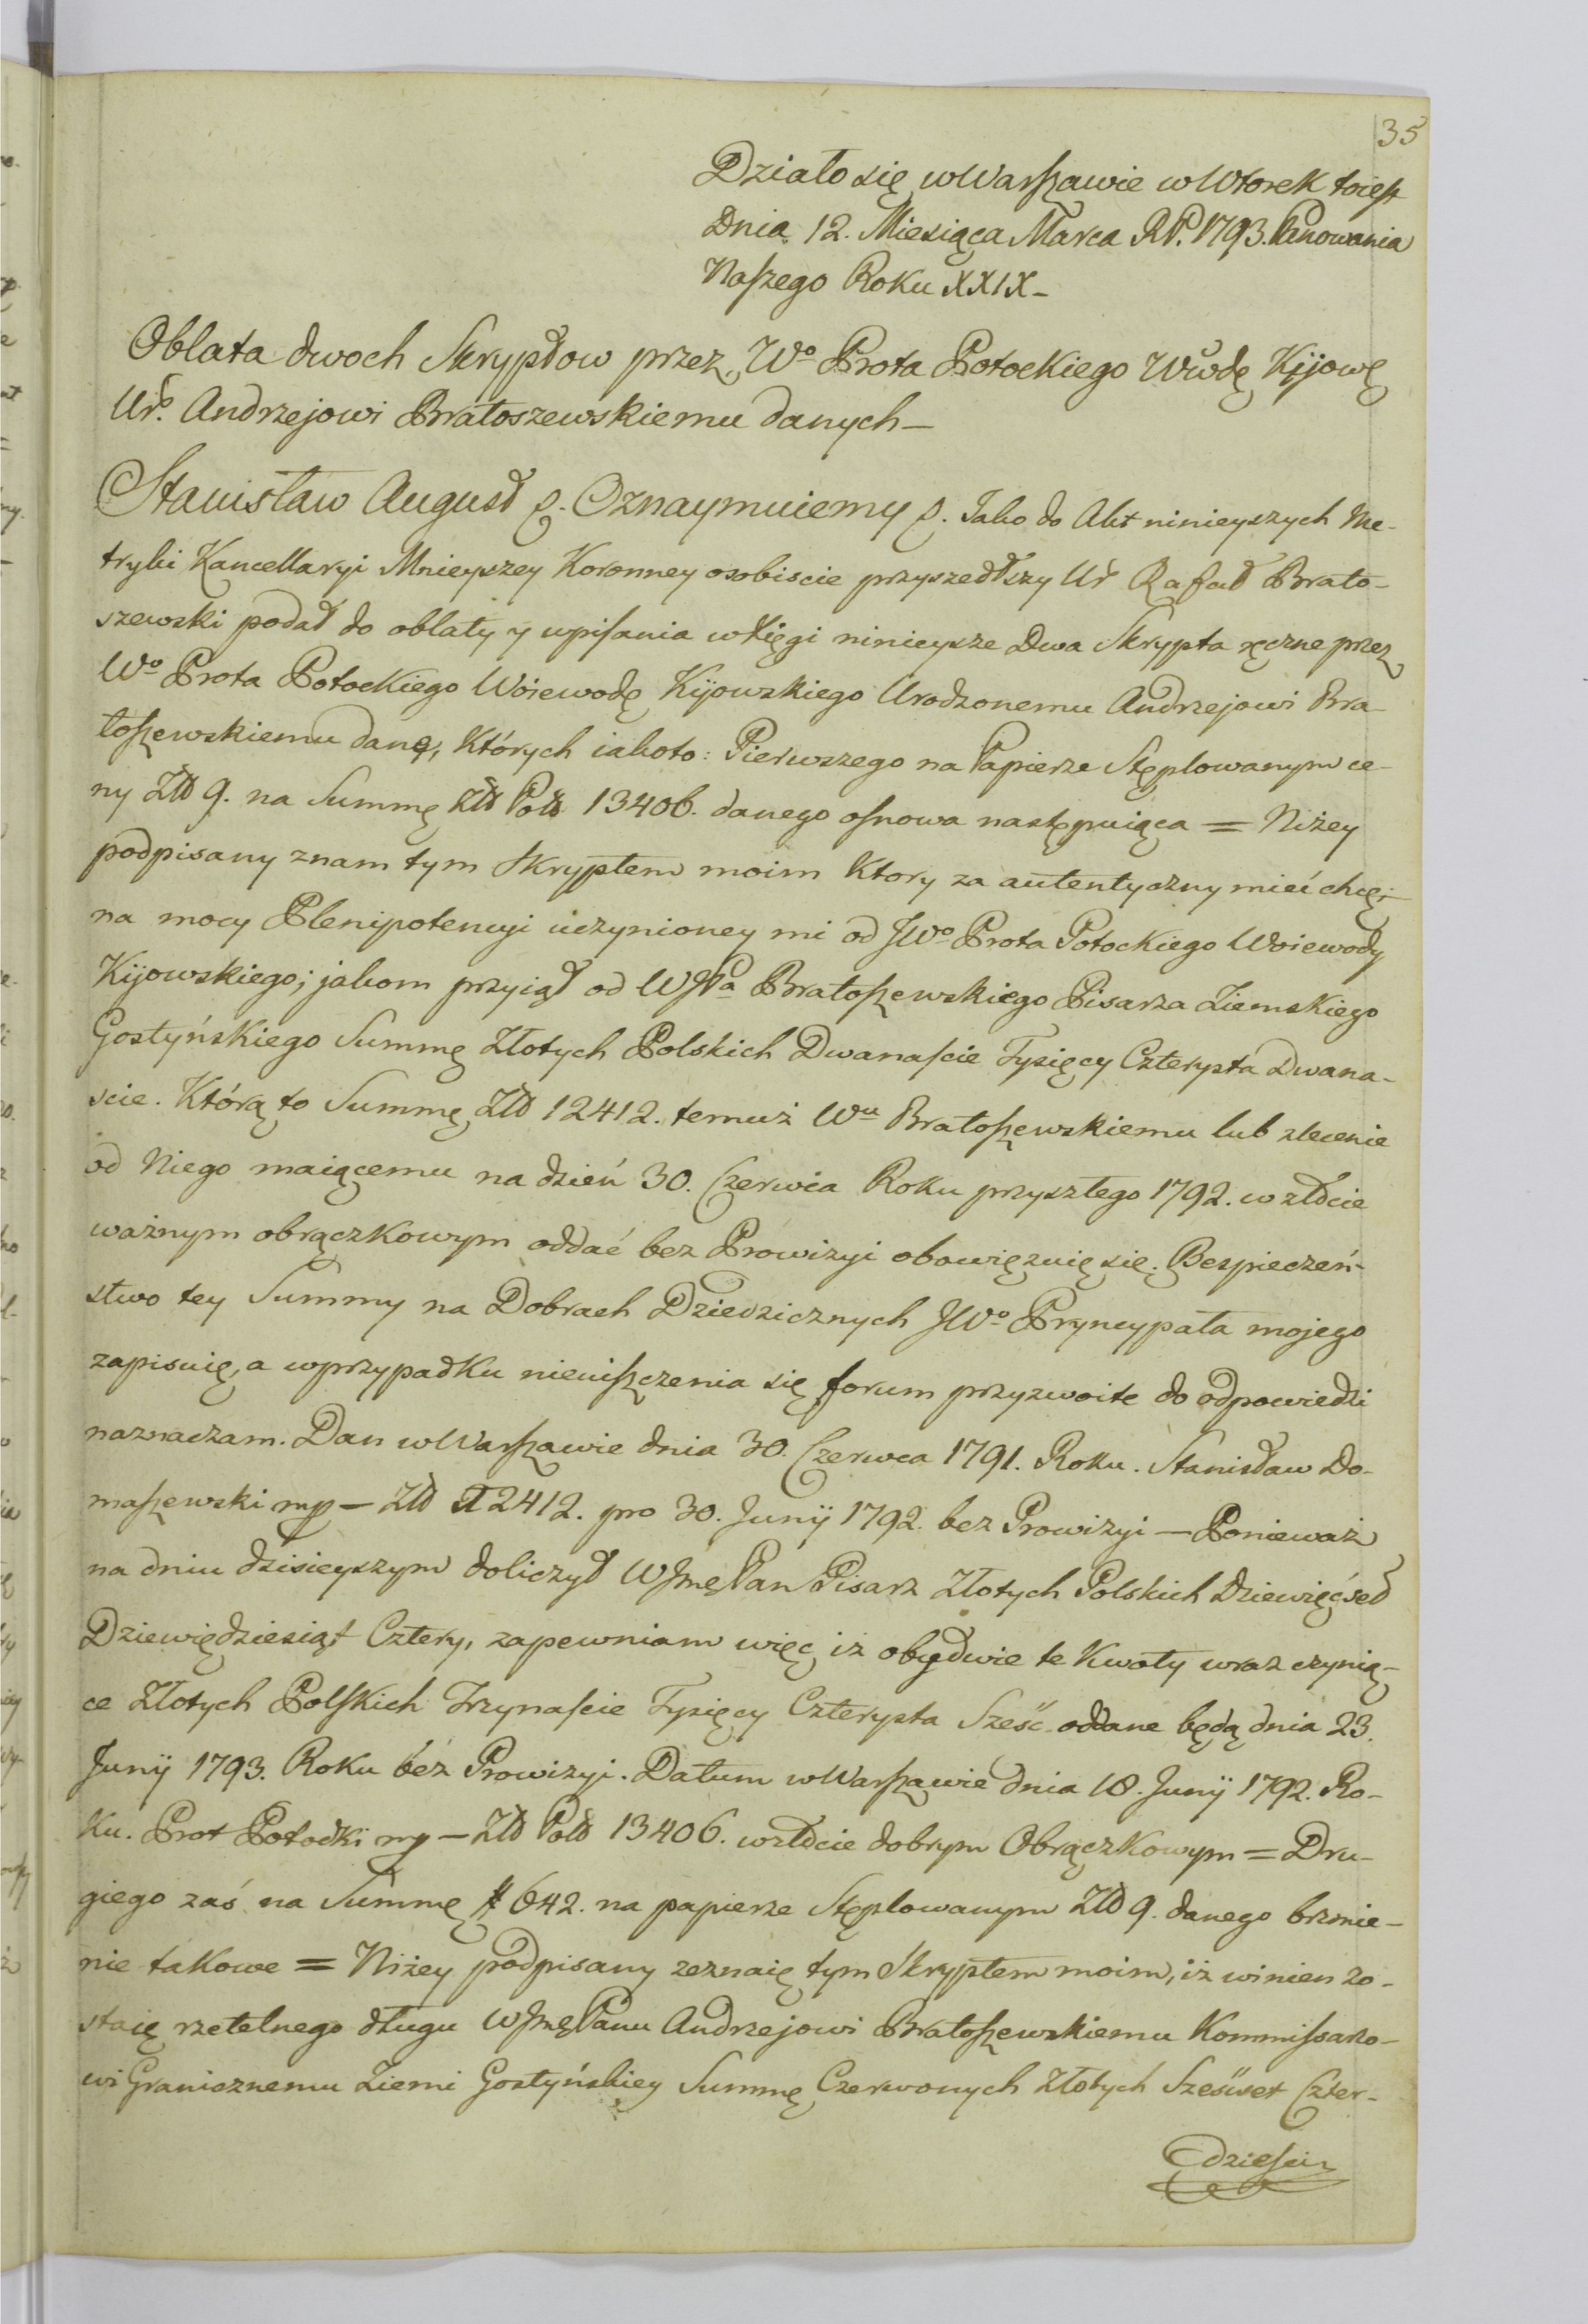 35
Działo się w Warszawie w Wtorek toiest
Dnia 12. Miesiąca Marca RP. 1793. Panowania
Naszego Roku XXIX–
Oblata dwoch Skryptow przez Wo Prota Potockiego Wwdę Kijowę
Uro. Andrzejowi Bratoszewskiemu danych–
Stanisław August &. Oznaymuiemy &. Jako do Akt ninieyszych Me-
tryki Kancellaryi Mnieyszey Koronney osobiscie przyszedłszy Ur Rafał Brato-
szewski podał do oblaty y wpisania w Xięgi ninieysze Dwa Skrypta ręczne przez
Wo Prota Potockiego Woiewodę Kijowskiego Urodzonemu Andrzejowi Bra-
toszewskiemu danę, Których iakoto: Pierwszego na Papierze Stęplowanym ce-
ny Złł 9. na Summę Złł Pols 13406. danego osnowa następuiąca = Niżey
podpisany znam tym Skryptem moim Ktory za autentyczny mieć chcę,
na mocy Plenipotencyi uczynioney mi od JWo Prota Potockiego Woiewody
Kijowskiego; jakom przyiął od WJPa Bratoszewskiego Pisarza Ziemskiego
Gostyńskiego Summę Złotych Polskich Dwanascie Tysięcy Czterysta Dwana-
scie. Którą to Summę Złł 12412. temuż Wu Bratoszewskiemu lub zlecenie
od Niego maiącemu na dzień 30. Czerwca Roku przyszłego 1792. w złocie
ważnym obrączkowym oddać bez Prowizyi obowięzuię się. Bezpieczeń-
stwo tey Summy na Dobrach Dziedzicznych JWo Pryncypała mojego
zapisuię, a w przypadku nieuiszczenia się forum przyzwoite do odpowiedzi
naznaczam. Dan w Warszawie dnia 30. Czerwca 1791. Roku. Stanisław Do-
maszewski mp – Złł 12412. pro 30. Junij 1792. bez Prowizyi – Ponieważ
na dniu dzisieyszym doliczył WJmę Pan Pisarz Złotych Polskich Dziewięćset
Dziewiędziesiąt Cztery, zapewniam więc iż obydwie te Kwoty wraz czynią-
ce Złotych Polskich Trzynascie Tysięcy Czterysta Sześć oddane będą dnia 23.
Junij 1793. Roku bez Prowizyi. Datum w Warszawie dnia 18. Junij 1792. Ro-
ku. Prot Potocki mp – Złł Polł 13406. w złocie dobrym Obrączkowym = Dru-
giego zaś na Summę # 642. na papierze Stęplowanym Złł 9. danego brzmie-
nie takowe = Niżey podpisany zeznaię tym Skryptem moim, iż winien zo-
staię rzetelnego długu WJmę Panu Andrzejowi Bratoszewskiemu Kommissarzo-
wi Granicznemu Ziemi Gostyńskiey Summę Czerwonych Złotych Sześćset Czter-
dziesci